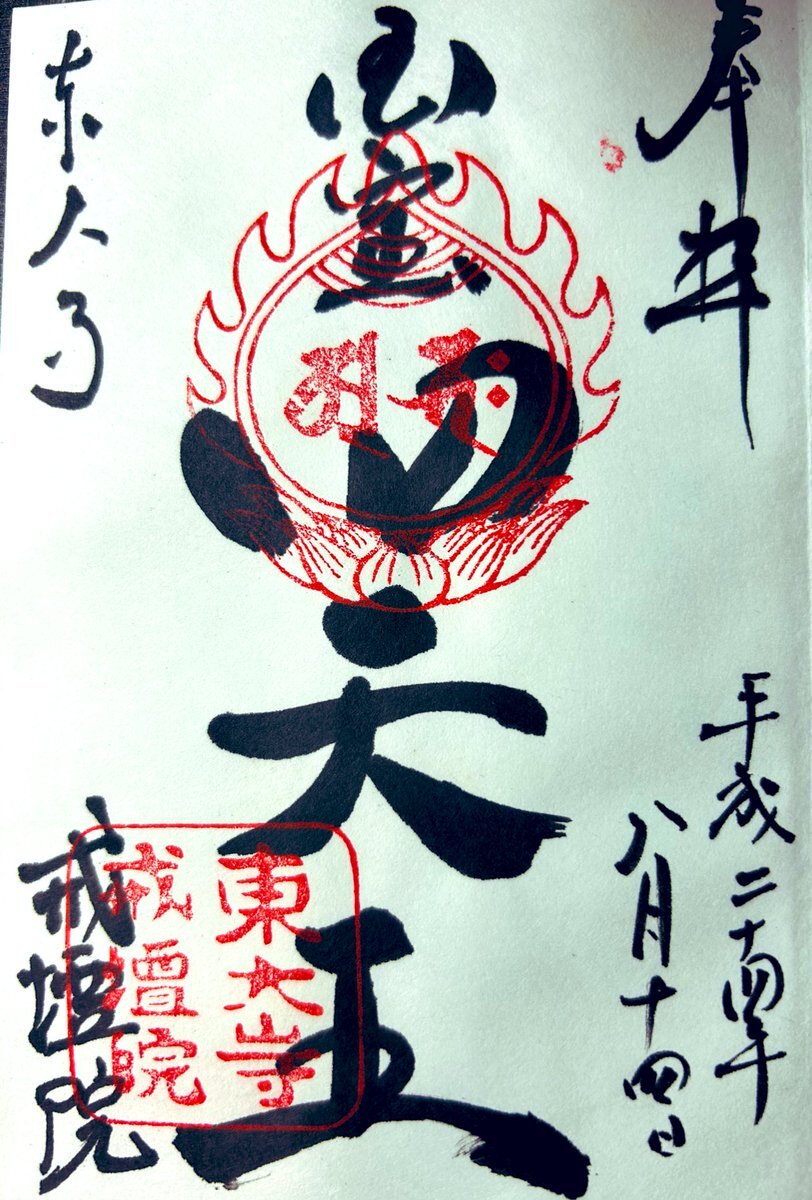 奉拝
平成二十四年
八月十四日
四天王
東大寺
戒壇院
東大寺
戒壇院